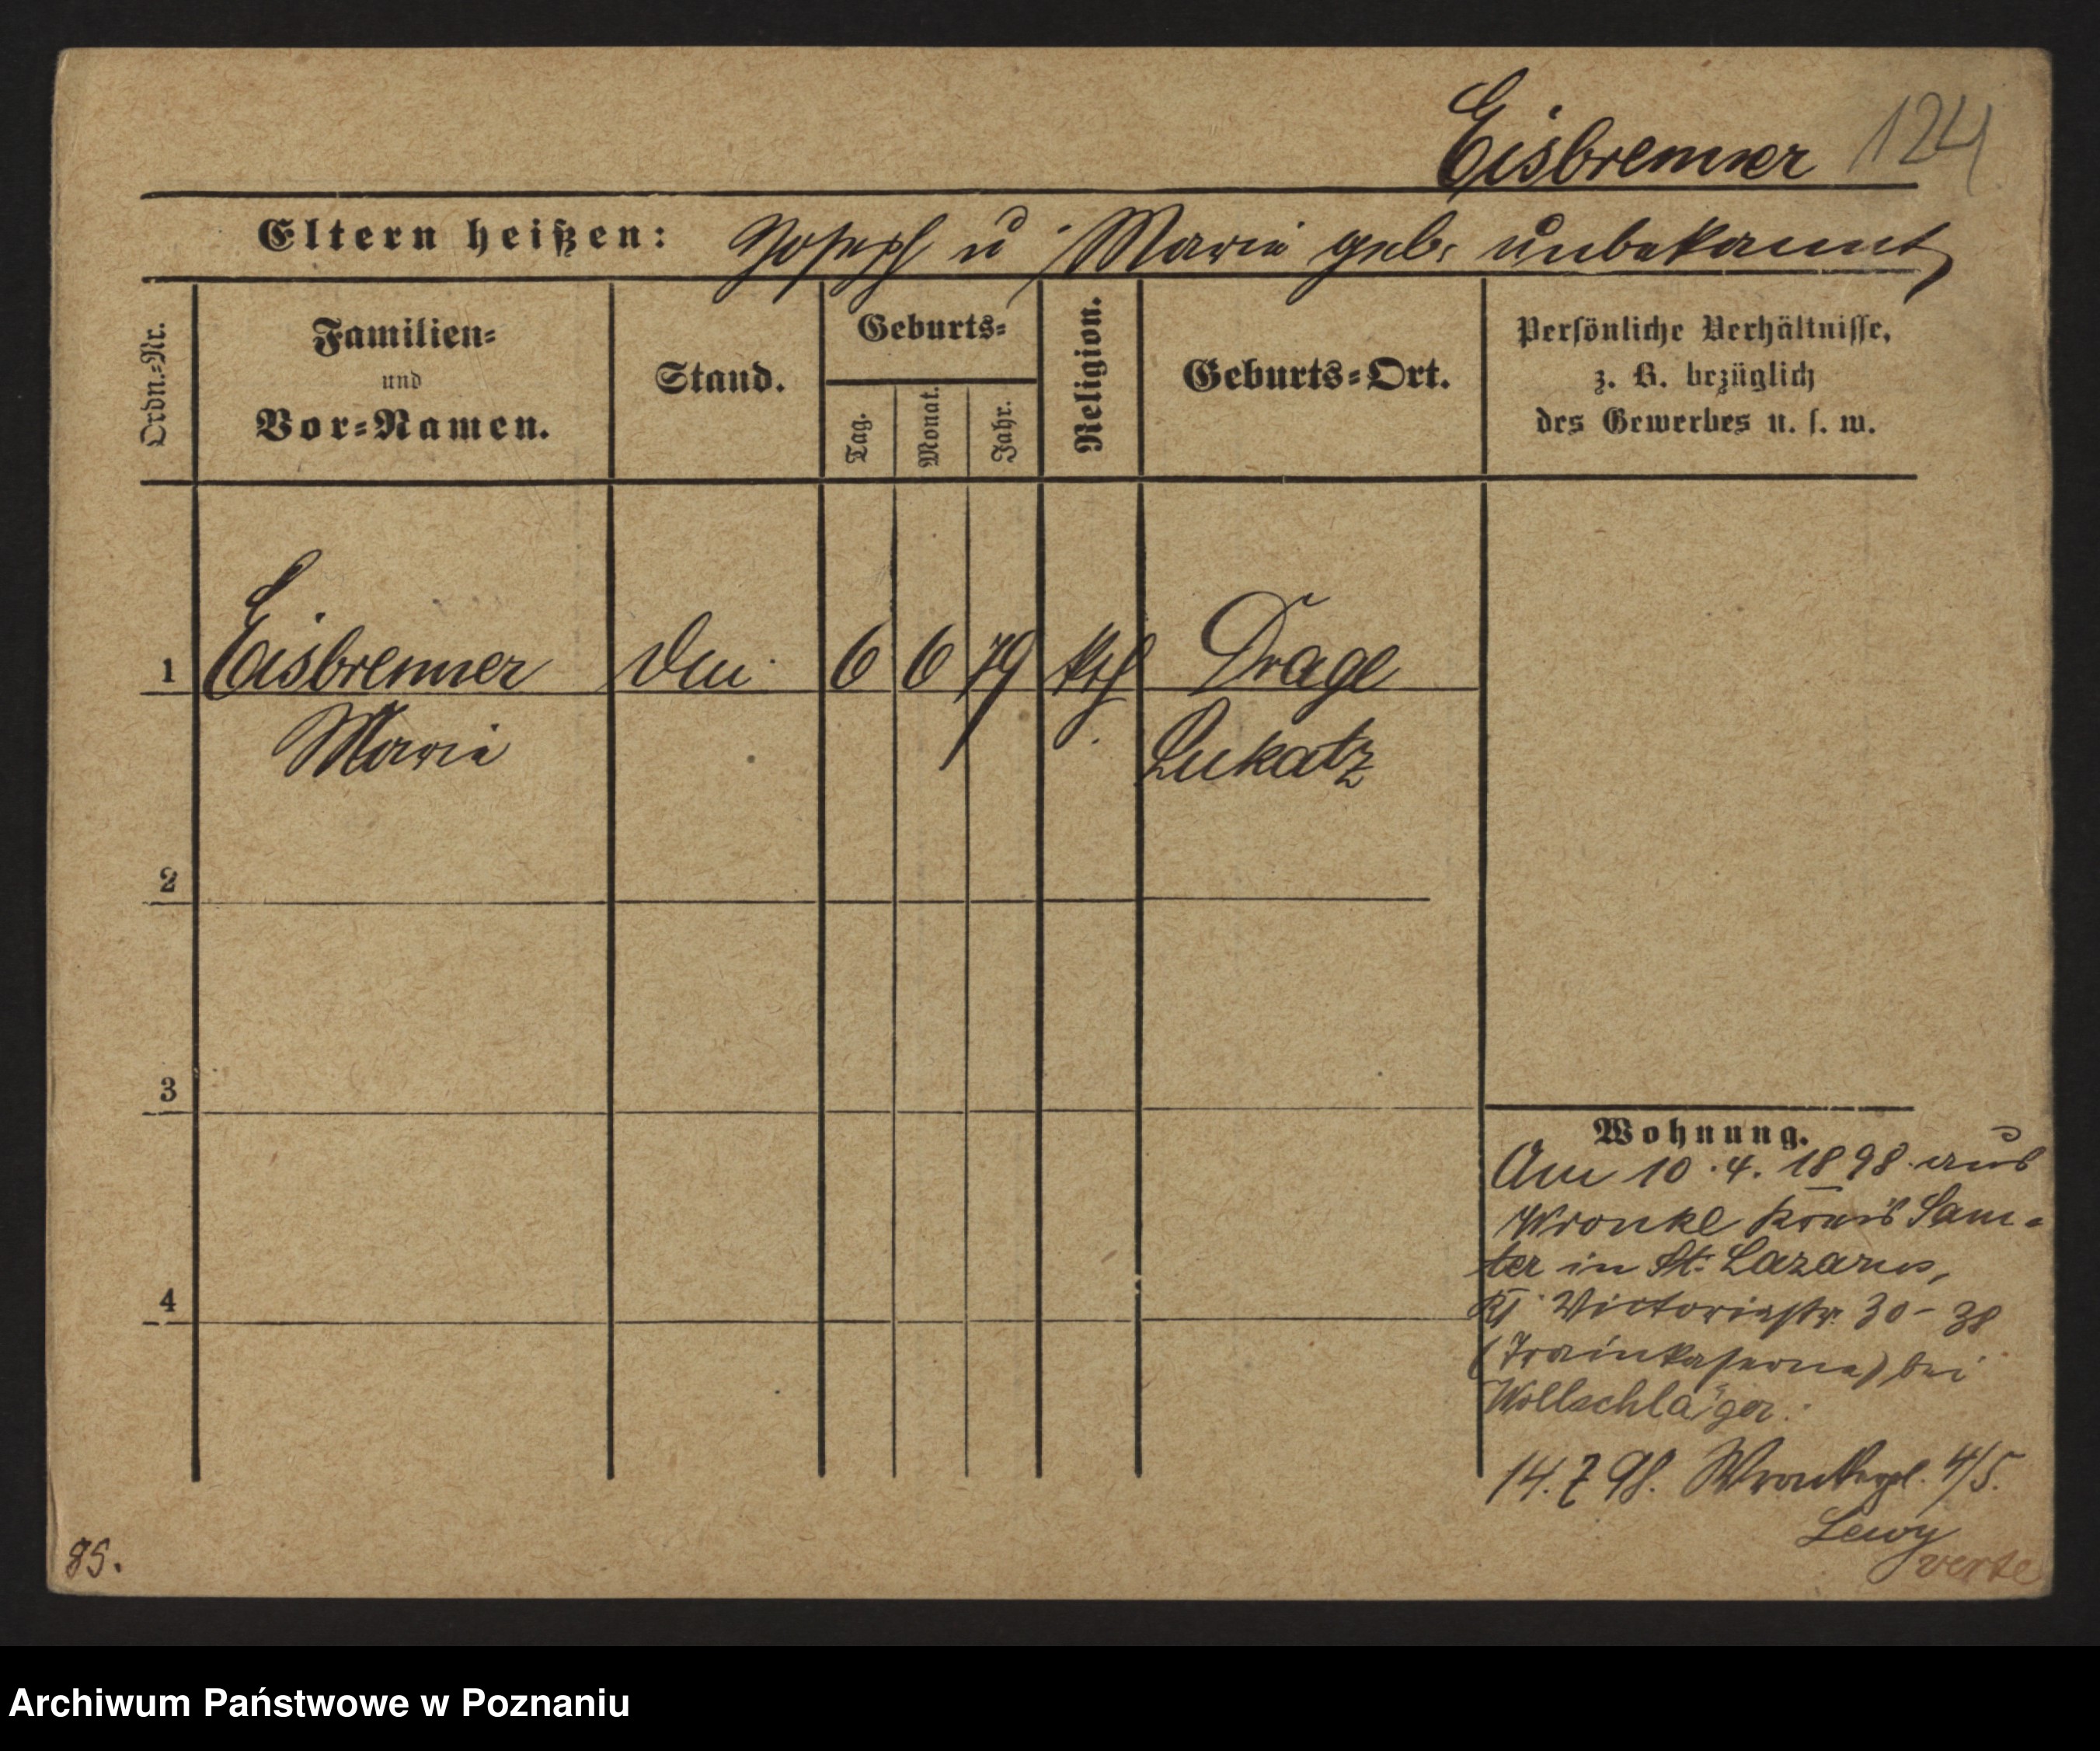 Eisbrenner 124
Eltern heißen: Joseph u Maria geb. unbekannt
Ordn.-Nr.
Familien-
und
Vor-Namen.
Stand.
Geburts-
Tag.
Monat.
Jahr.
Religion.
Geburts-Ort.
Persönliche Verhältnisse,
z. B. bezüglich
des Gewerbes u. s. w.
1 Eisbrenner 6 6 79 kth Drage
Maria Lukatz
2
3
4
Wohnung.
Am 10.4.1898 aus
Wronke Kreis Sam-
ter in St. Lazarus,
Victoriastr. 30-38
(Trainkaserne) bei
Wollschläger.
14.7 98. Wronkerpl. 4/5.
Lewy
verte
85.
Archiwum Państwowe w Poznaniu